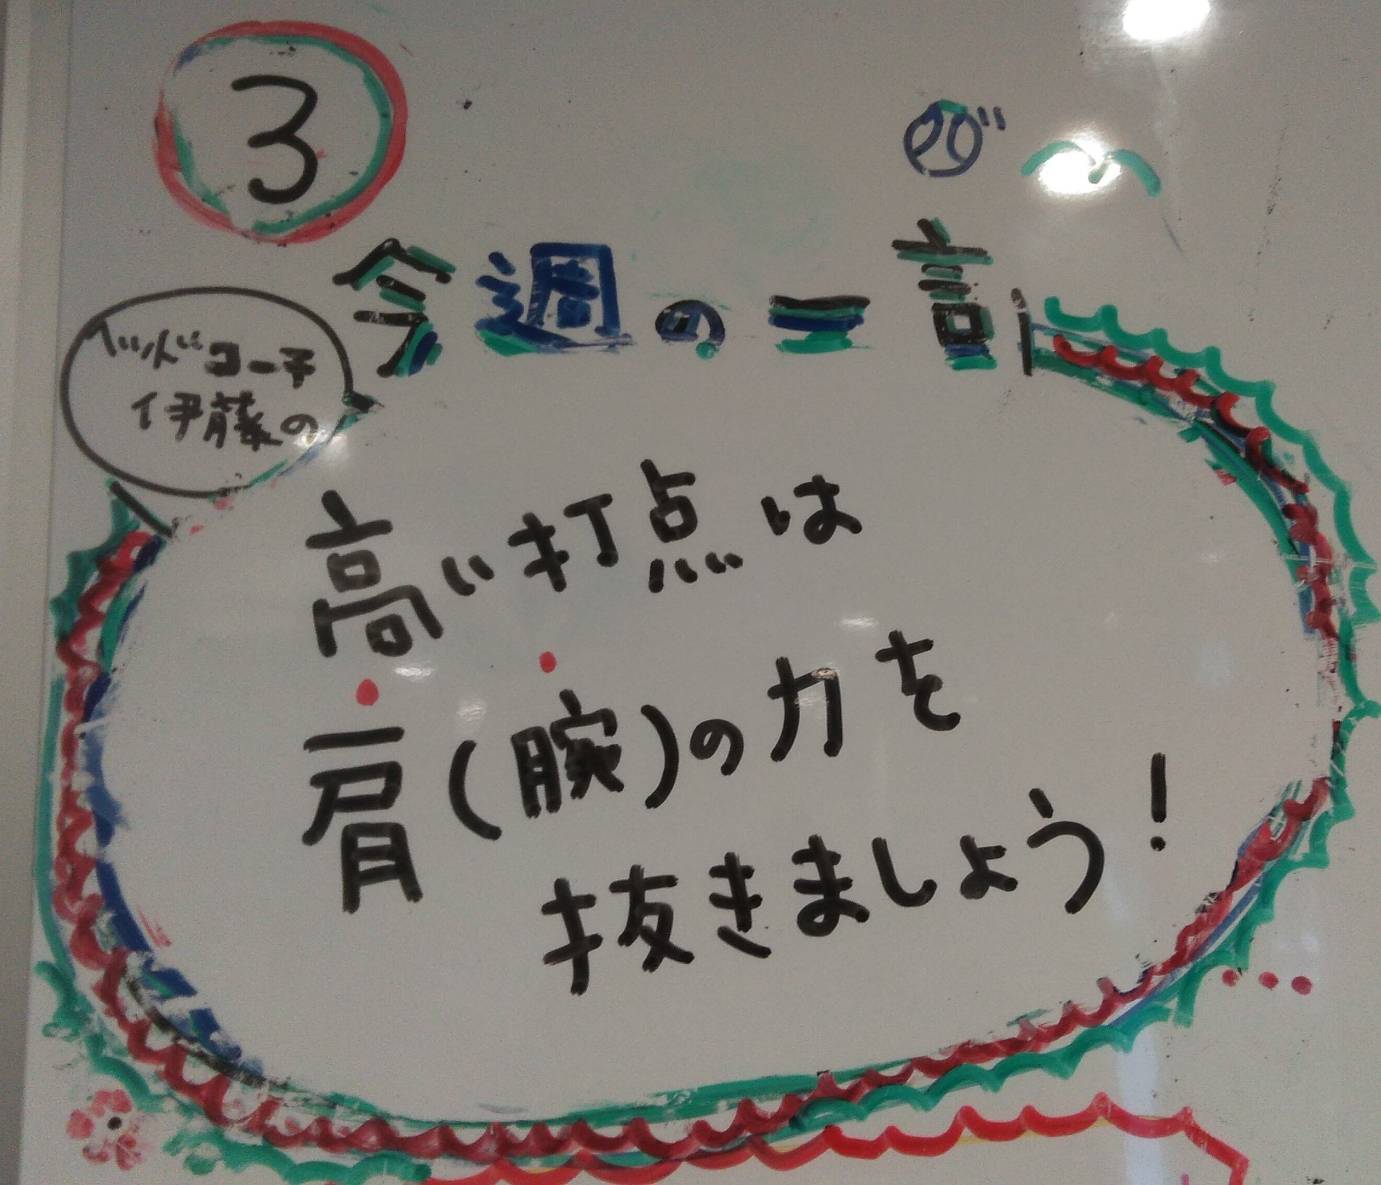 3
今週の一言
コー子
伊藤の
高い打点は
肩(腕)の力を
抜きましょう!